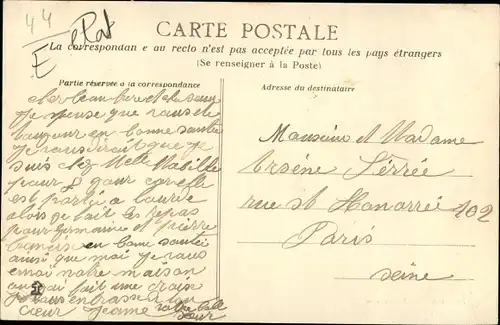 44
E
CARTE POSTALE
La correspondan e au recto n'est pas acceptée par tous les pays étrangers
(Se renseigner à la Poste)
Partie réservée à la correspondance
Adresse du destinataire
cher beau frere et
je pense que vous
en bonne santé
je vous que je
suis chez Melle
pour 8 jour
est partie a
alors je fait les repas
pour Germaine et pierre
en bonne santé
ainsi que moi je vous
envoi notre maison
ou j'ai fait une croix
je vous embrasse bon
cœur Jeanne votre belle
sœur
Monsieur et Madame
Arsène Ferrée
rue st Honorré 102
Paris
Seine